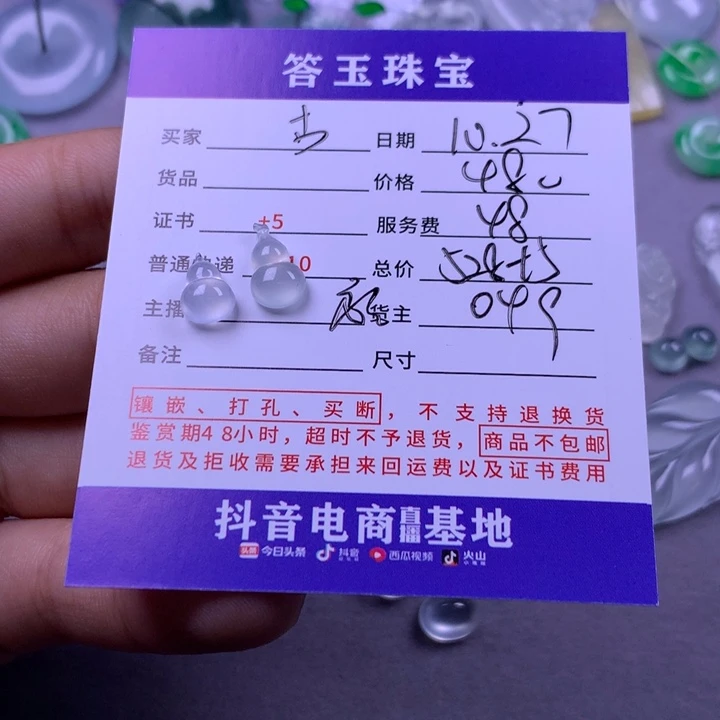 答玉珠宝
买家 日期 10.27
货品 价格 480
证书 +5 服务费 48
普通 递 10 总价 528+5
主播 货主 049
备注 尺寸
镶嵌、打孔、买断，不支持退换货
鉴赏期48小时，超时不予退货，商品不包邮
退货及拒收需要承担来回运费以及证书费用
抖音电商直播基地
头条 今日头条 抖音 西瓜视频 火山